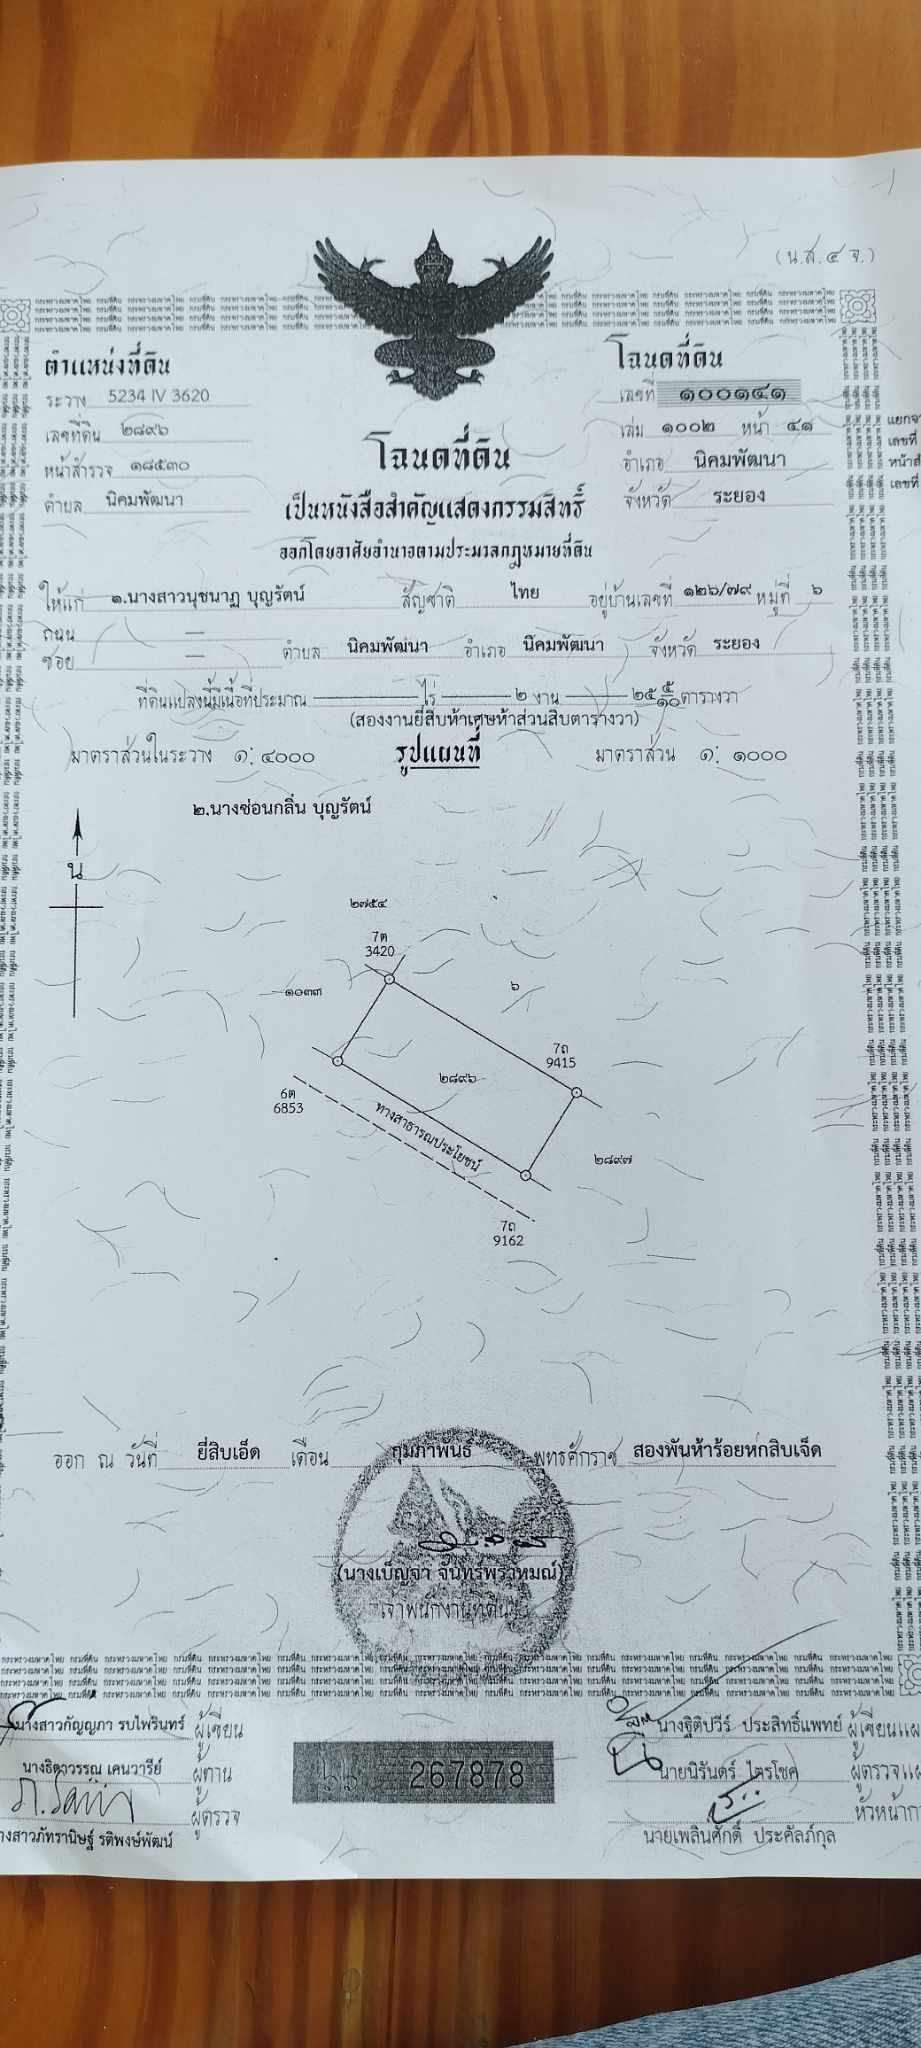 (น.ส.๔ จ.)
ตำแหน่งที่ดิน
ระวาง 5234 IV 3620
เลขที่ดิน ๒๘๙๖
หน้าสำรวจ ๑๘๕๓๐
ตำบล นิคมพัฒนา
โฉนดที่ดิน
เลขที่ ๑๐๐๑๔๑
เล่ม ๑๐๐๒ หน้า ๔๑
อำเภอ นิคมพัฒนา
จังหวัด ระยอง
แยกจา
เลขที่
หน้าสำ
เลขที่
โฉนดที่ดิน
เป็นหนังสือสำคัญแสดงกรรมสิทธิ์
ออกโดยอาศัยอำนาจตามประมวลกฎหมายที่ดิน
ให้แก่ ๑.นางสาวนุชนาฏ บุญรัตน์ สัญชาติ ไทย อยู่บ้านเลขที่ ๑๒๖/๗๙ หมู่ที่ ๖
ถนน —
ซอย — ตำบล นิคมพัฒนา อำเภอ นิคมพัฒนา จังหวัด ระยอง
ที่ดินแปลงนี้มีเนื้อที่ประมาณ — ไร่ — ๒ งาน — ๒๕ ๕/๑๐ ตารางวา
(สองงานยี่สิบห้าเศษห้าส่วนสิบตารางวา)
มาตราส่วนในระวาง ๑: ๔๐๐๐ รูปแผนที่ มาตราส่วน ๑: ๑๐๐๐
๒.นางซ่อนกลิ่น บุญรัตน์
น
๒๗๕๔
7ต
3420
๑๐๓๓
๖
7ถ
9415
๒๘๙๖
6ต
6853
ทางสาธารณประโยชน์
๒๘๙๗
7ถ
9162
ออก ณ วันที่ ยี่สิบเอ็ด เดือน กุมภาพันธ์ พุทธศักราช สองพันห้าร้อยหกสิบเจ็ด
(นางเบ็ญจา จันทร์พราหมณ์)
เจ้าพนักงานที่ดิน
นางสาวกัญญภา รบไพรินทร์ ผู้เขียน
นางธิดาวรรณ เคนวารีย์ ผู้ทาน
ผู้ตรวจ
างสาวภัทรานิษฐ์ รติพงษ์พัฒน์
267878
นางฐิติปวีร์ ประสิทธิ์แพทย์ ผู้เขียนแผ
นายนิรันดร์ ไตรโชค ผู้ตรวจแผ
หัวหน้ากา
นายเพลินศักดิ์ ประคัลภ์กุล